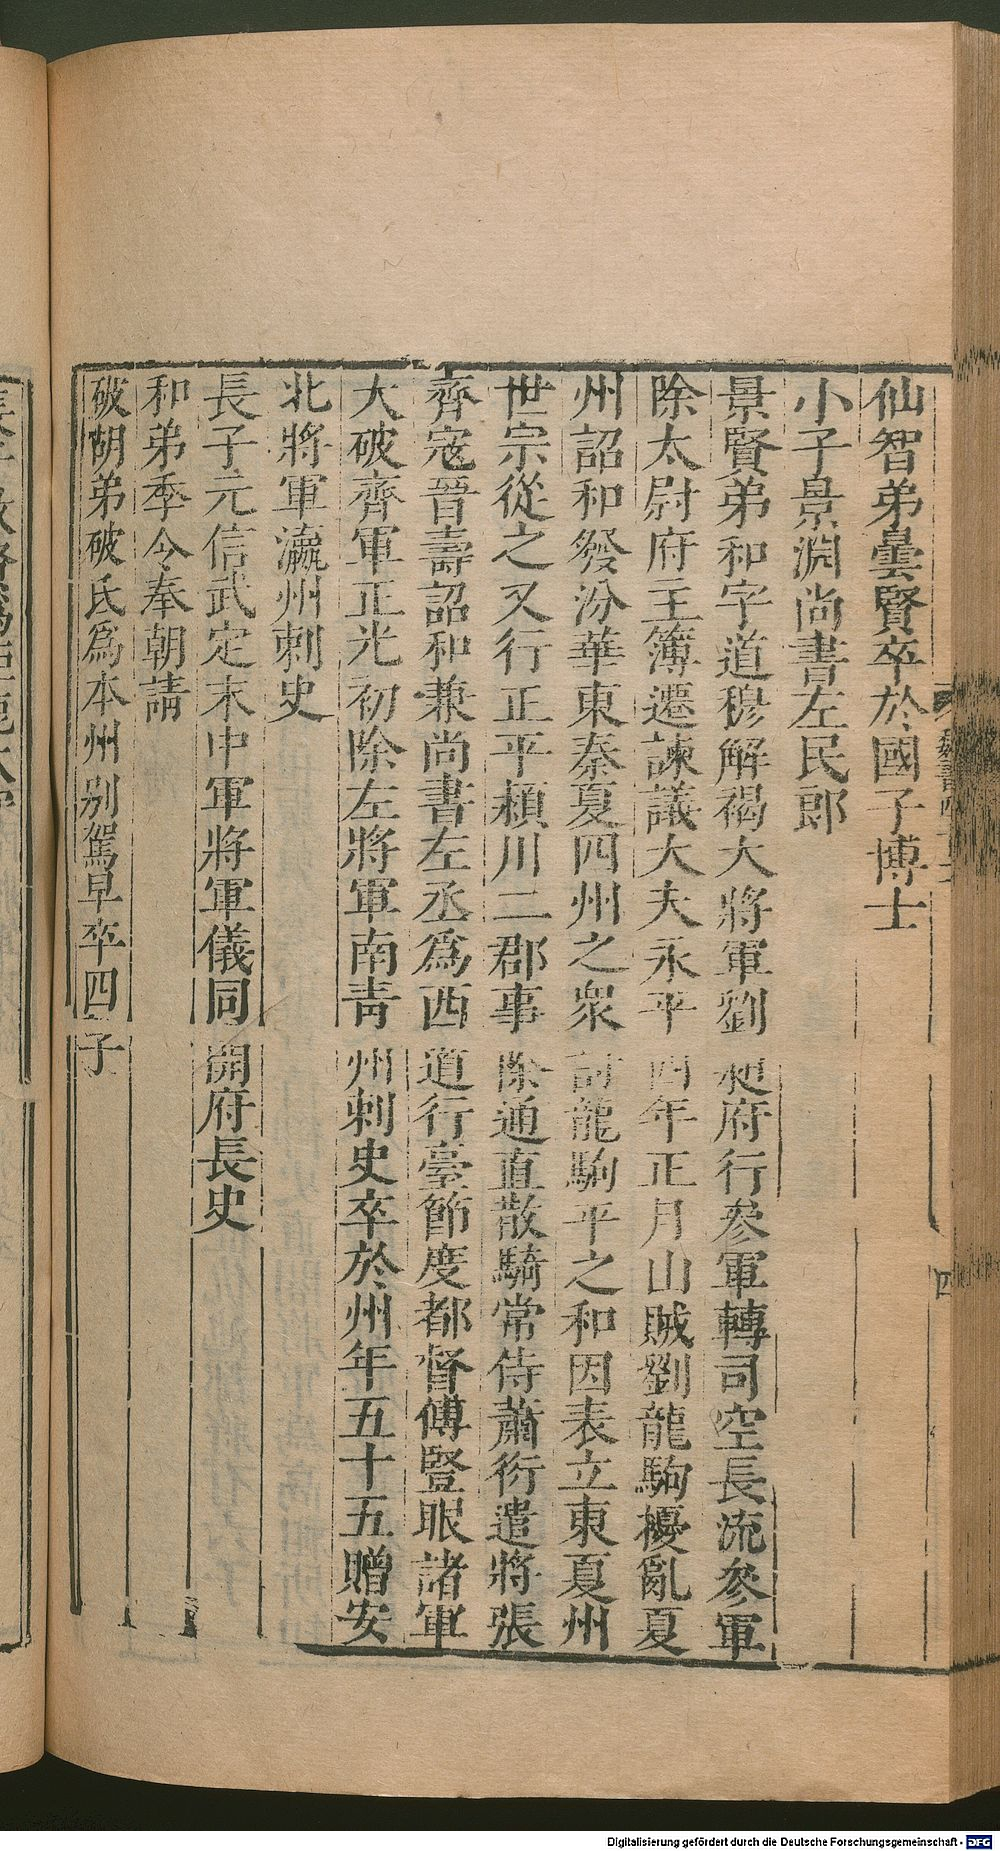 仙智弟曇賢卒於國子博士
小子景淵尚書左民郎
景賢弟和字道穆解褐大將軍劉昶府行參軍轉司空長流參軍
除太尉府主簿遷諫議大夫永平四年正月山賊劉龍駒擾亂夏
州詔和發汾華東秦夏四州之衆討龍駒平之和因表立東夏州
世宗從之又行正平潁川二郡事除通直散騎常侍蕭衍遣將張
齊寇晉壽詔和兼尚書左丞爲西道行臺節度都督傅豎眼諸軍
大破齊軍正光初除左將軍南青州刺史卒於州年五十五贈安
北將軍瀛州刺史
長子元信武定末中軍將軍儀同開府長史
和弟季令奉朝請
破胡弟破氐爲本州別駕早卒四子
Digitalisierung gefördert durch die Deutsche Forschungsgemeinschaft - DFG